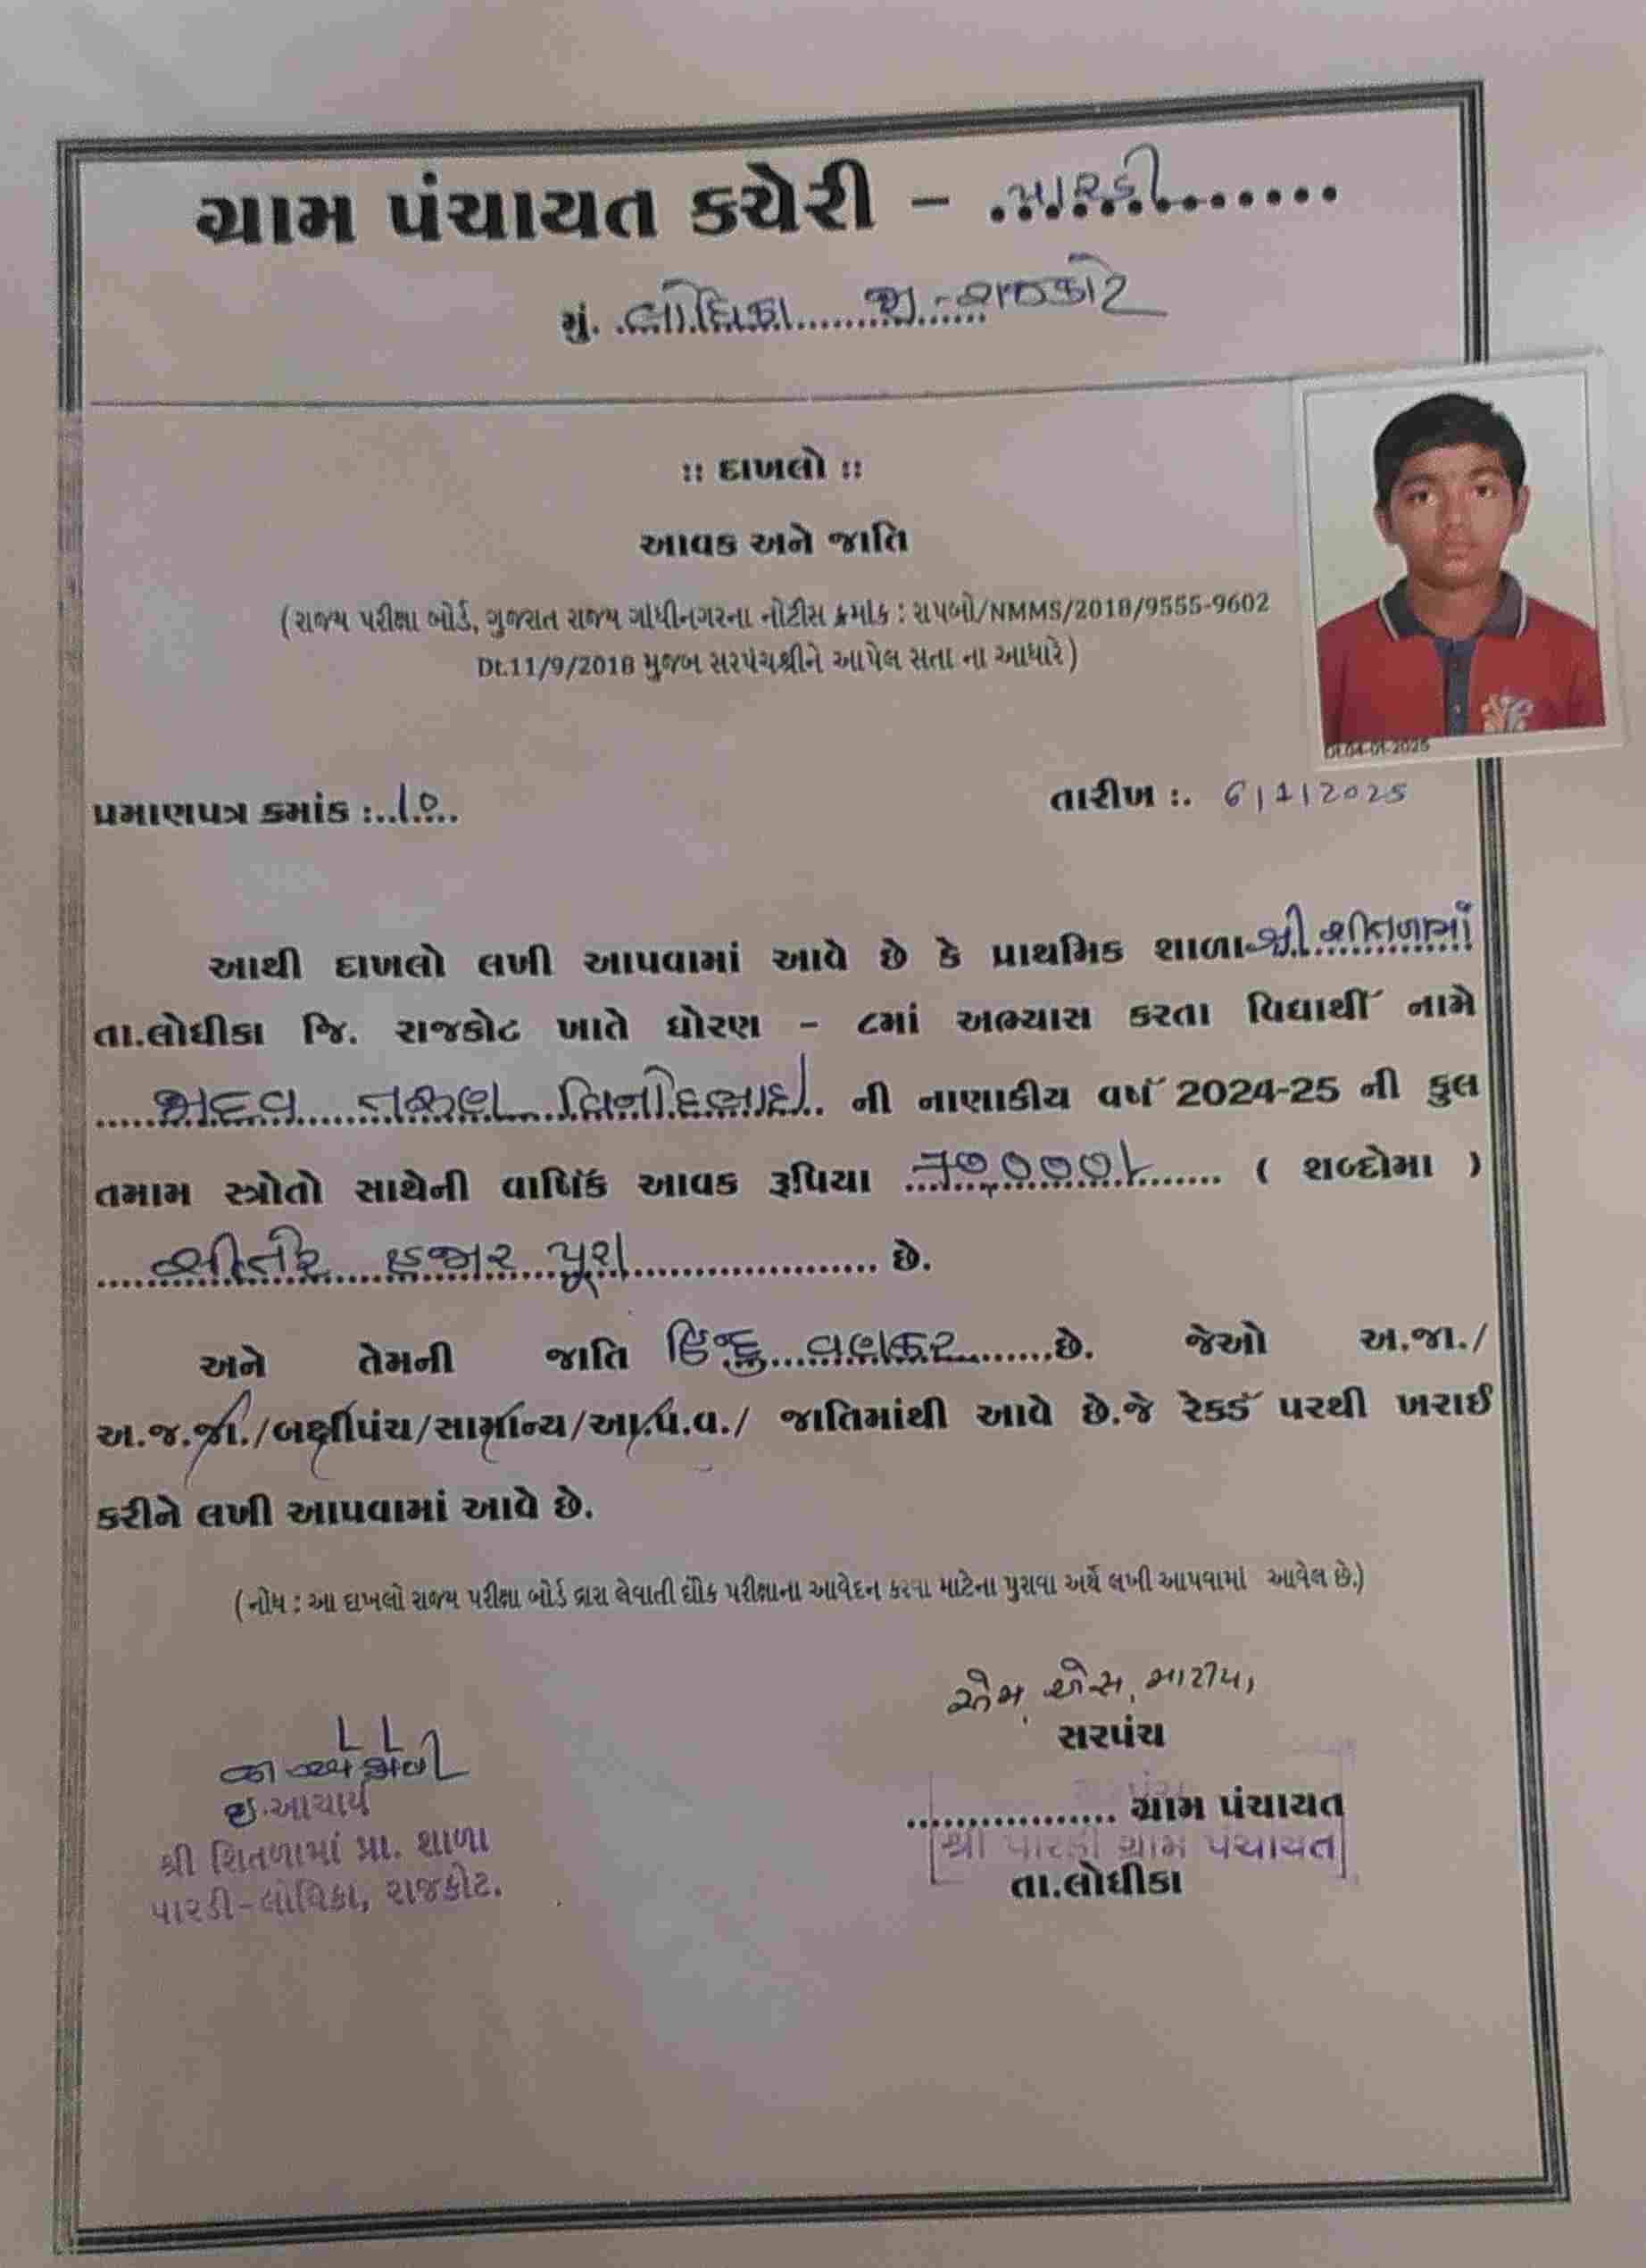 ગ્રામ પંચાયત કચેરી - પારડી
મું. લોધિકા જી-રાજકોટ
:: દાખલો ::
આવક અને જાતિ
(રાજ્ય પરીક્ષા બોર્ડ, ગુજરાત રાજ્ય ગાંધીનગરના નોટીસ ક્રમાંક : રાપબો/NMMS/2018/9555-9602
Dt.11/9/2018 મુજબ સરપંચશ્રીને આપેલ સતા ના આધારે)
Dt.04-01-2025
પ્રમાણપત્ર ક્રમાંક :..10..
તારીખ :. 6/1/2025
આથી દાખલો લખી આપવામાં આવે છે કે પ્રાથમિક શાળા શ્રી શીતળામાં
તા.લોધીકા જિ. રાજકોટ ખાતે ધોરણ - ૮માં અભ્યાસ કરતા વિદ્યાર્થી નામે
તરુણ વિનોદભાઈ ની નાણાકીય વર્ષ 2024-25 ની કુલ
તમામ સ્ત્રોતો સાથેની વાર્ષિક આવક રૂપિયા ૭૦,૦૦૦/- ( શબ્દોમા )
સીતેર હજાર પૂરા છે.
અને તેમની જાતિ હિન્દુ વણકર છે. જેઓ અ.જા./
અ.જ.જા./બક્ષીપંચ/સામાન્ય/આ.પ.વ./ જાતિમાંથી આવે છે.જે રેકર્ડ પરથી ખરાઈ
કરીને લખી આપવામાં આવે છે.
(નોંધ : આ દાખલો રાજ્ય પરીક્ષા બોર્ડ દ્વારા લેવાતી શૈક્ષણિક પરીક્ષાના આવેદન કરવા માટેના પુરાવા અર્થે લખી આપવામાં આવેલ છે.)
એમ. એસ. મારીયા
સરપંચ
ગ્રામ પંચાયત
શ્રી પારડી ગ્રામ પંચાયત
તા.લોધીકા
ઇ.આચાર્ય
શ્રી શિતળામાં પ્રા. શાળા
પારડી-લોધિકા, રાજકોટ.